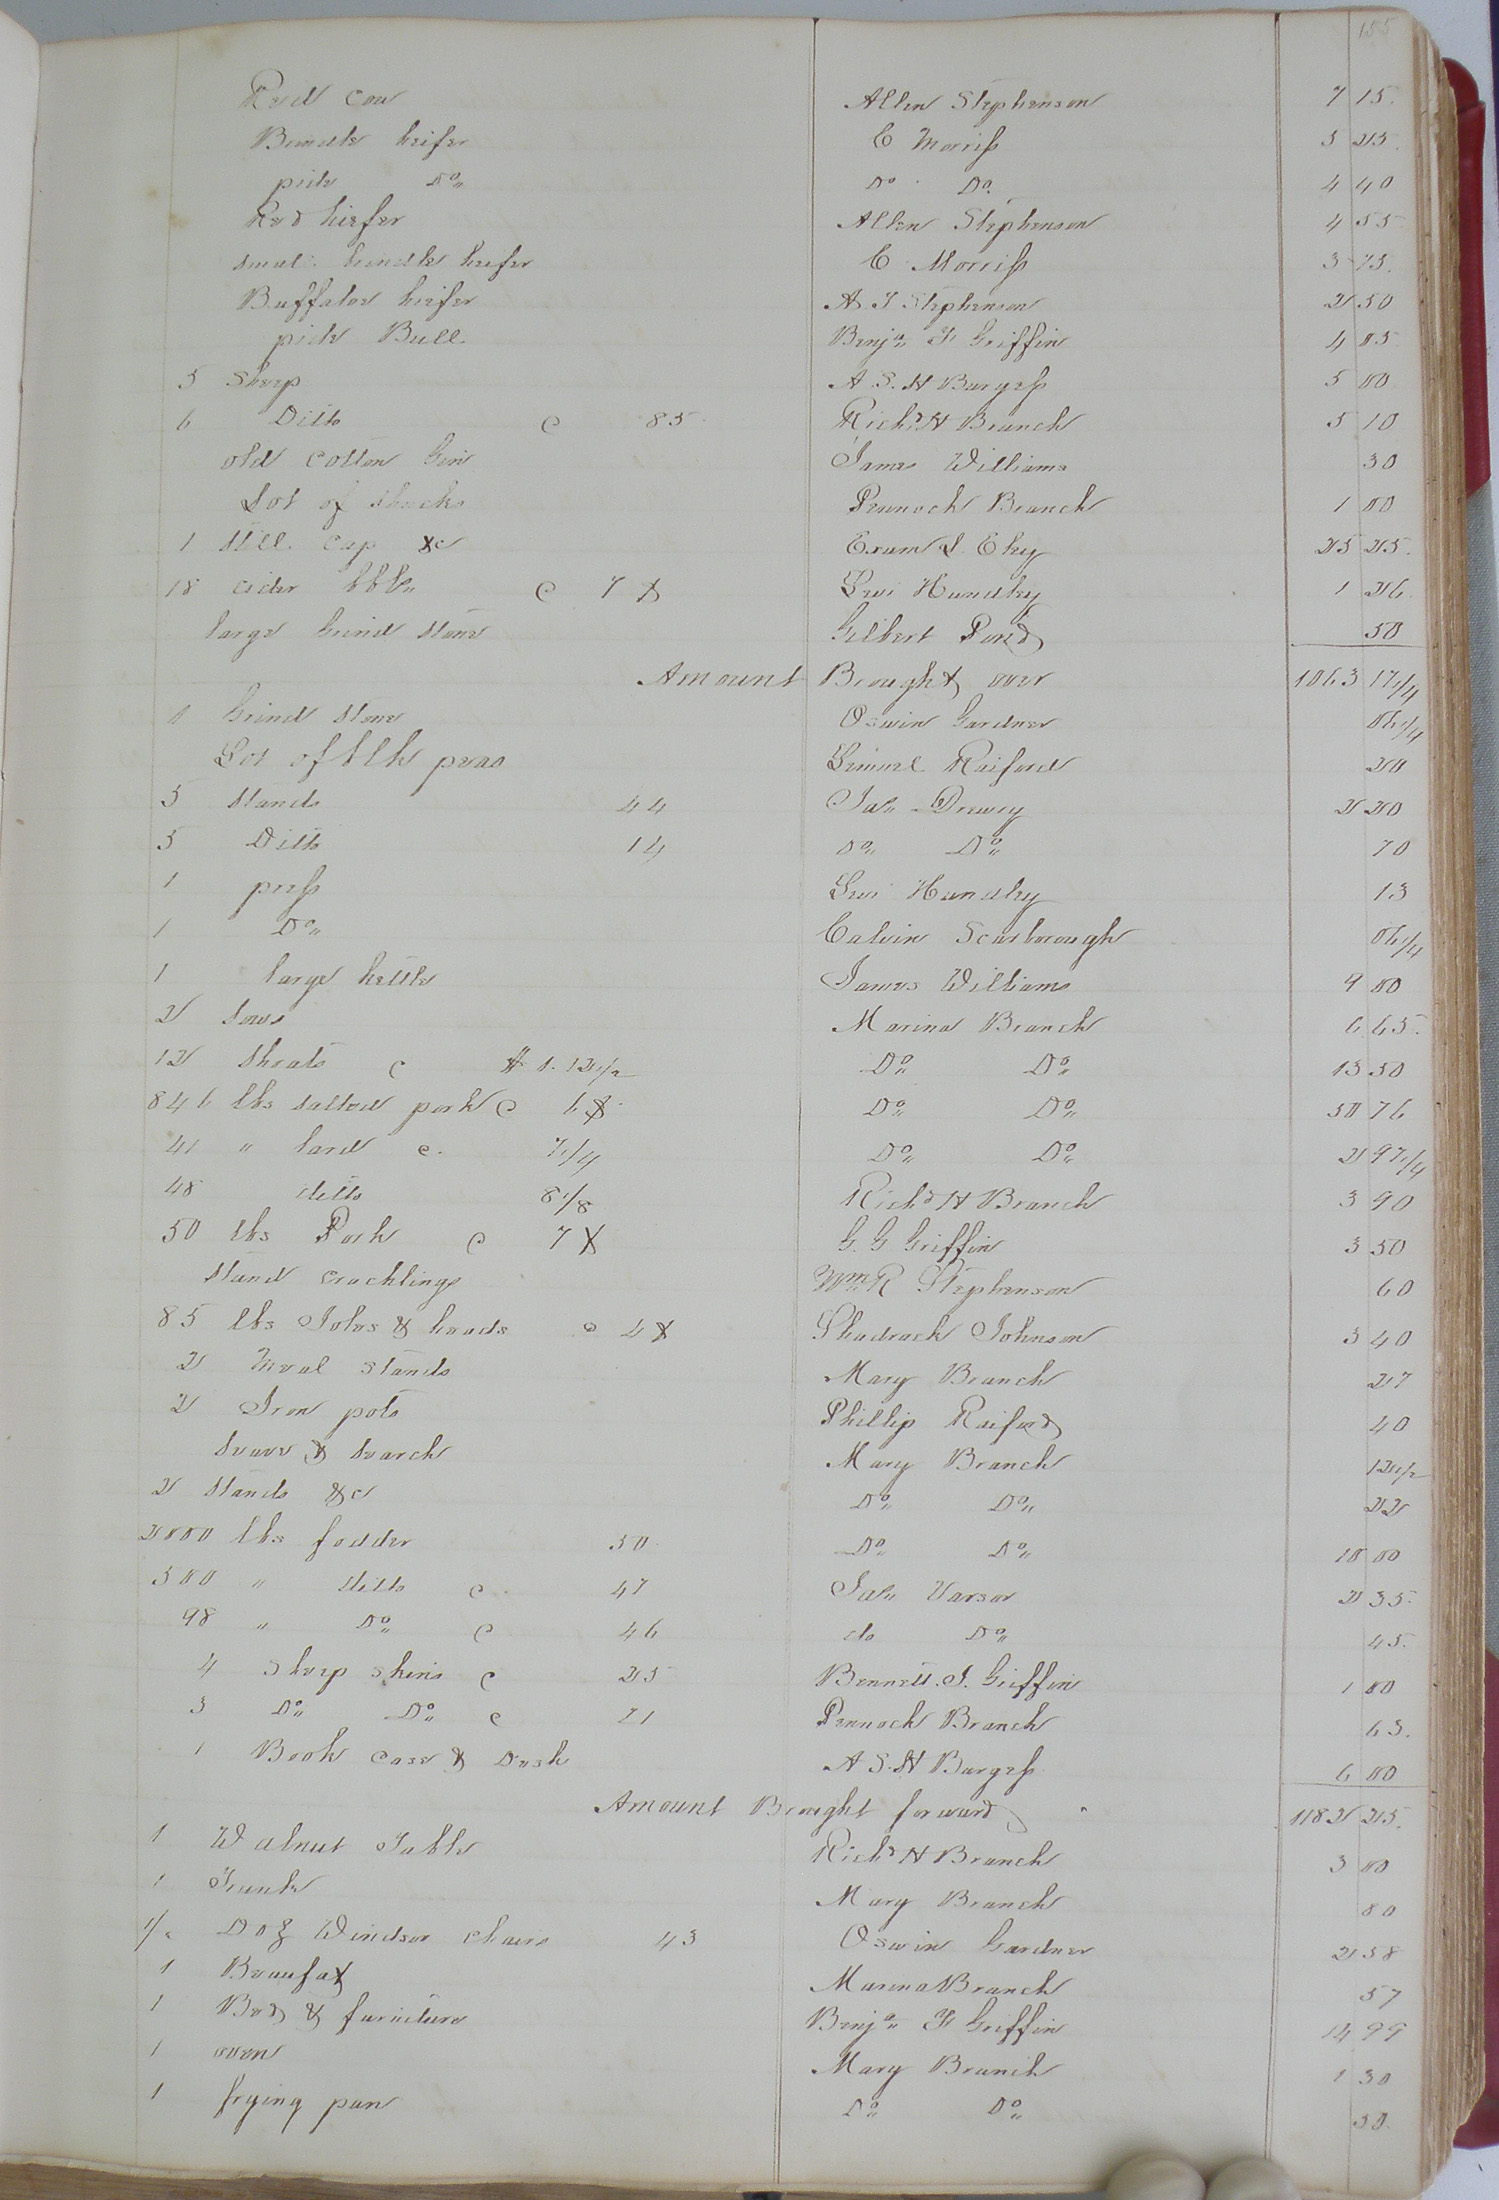 155
Red cow Allen Stephenson 7 15.
Brindle heifer E Morriss 5 25.
pide Do,, Do Do. 4 40
Red hiefer Allen Stephenson 4 55
smal. brindle heifer E Morriss 3 75.
Buffaloe heifer A. J Stephenson 2 50
pide Bull. Benja,, F Griffin 4 05
5 Sheep A. S. H Burgess 5 00
6 Ditto @ 85 Richd H Branch 5 10
old cotton Gin James Williams 30
Lot of shucks Pennock Branch 1 00
1 still. cap &c Exum L. Eley 25 25.
18 cider bbls,, @ 7 ¢ Levi Handley 1 26
large Grind stone Gilbert Pond 50
Amount Brought over 1063 17 1/4
1 Grind stone Oswin Gardner 06 1/4
Lot of blk peas Lemuel Raiford 20
5 stands 44 Jas,, Drewry 2 20
5 Ditto 14 Do,, Do,, 70
1 press Levi Handley 13
1 Do,, Calvin Scarborough 06 1/4
1 large kettle James Williams 9 00
2 sows Marina Branch 6 65.
12 shoats @ $ 1. 12 1/2 Do,, Do,, 13 50
846 lbs salted pork @ 6 ¢ Do,, Do,, 50 76
41 " lard @. 7 1/4 Do,, Do,, 2 97 1/4
48 ditto 8 1/8 Richd H Branch 3 90
50 lbs Pork @ 7 ¢ G. G Griffin 3 50
stand cracklings Wm R Stephenson 60
85 lbs Joles & heads @ 4 ¢ Shadrach Johnson 3 40
2 Meal stands Mary Branch 27
2 Iron pots Phillip Raiford 40
seave & search Mary Branch 12 1/2
2 stands &c Do,, Do,, 22
2000 lbs fodder 50 Do,, Do,, 10 00
500 " ditto @ 47 Jas,, Varsar 2 35.
98 " Do,, @ 46 do Do,, 45.
4 Sheep skins @ 25 Bennett. J. Griffin 1 00
3 Do,, Do,, @ 21 Pennock Branch 63.
1 Book case & Desk A S. H Burgess 6 00
Amount Brought forward 1182 25.
1 Walnut Table Richd H Branch 3 00
1 Trunk Mary Branch 80
1/2 Doz Windsor chairs 43 Oswin Gardner 2 58
1 Beaufat Marina Branch 57
1 Bed & furniture Benja,, F Griffin 14 99
1 oven Mary Branch 1 30
1 frying pan Do,, Do,, 50